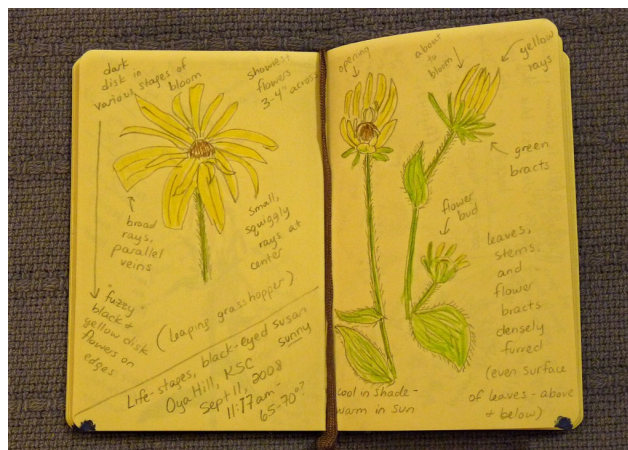 dark
disk in
various stages of
bloom
showiest
flowers
3-4" across
broad
rays,
parallel
veins
small,
squiggly
rays at
center
"fuzzy"
black &
yellow disk
flowers on
edges
(leaping grasshopper)
Life-stages, black-eyed susan
Oya Hill, KSC
sunny
Sept 11, 2008
11:17am-
65-70°?
opening
about
to
bloom
yellow
rays
green
bracts
flower
bud
leaves,
stems,
and
flower
bracts
densely
furred
(even surface
of leaves - above
& below)
cool in shade -
warm in sun